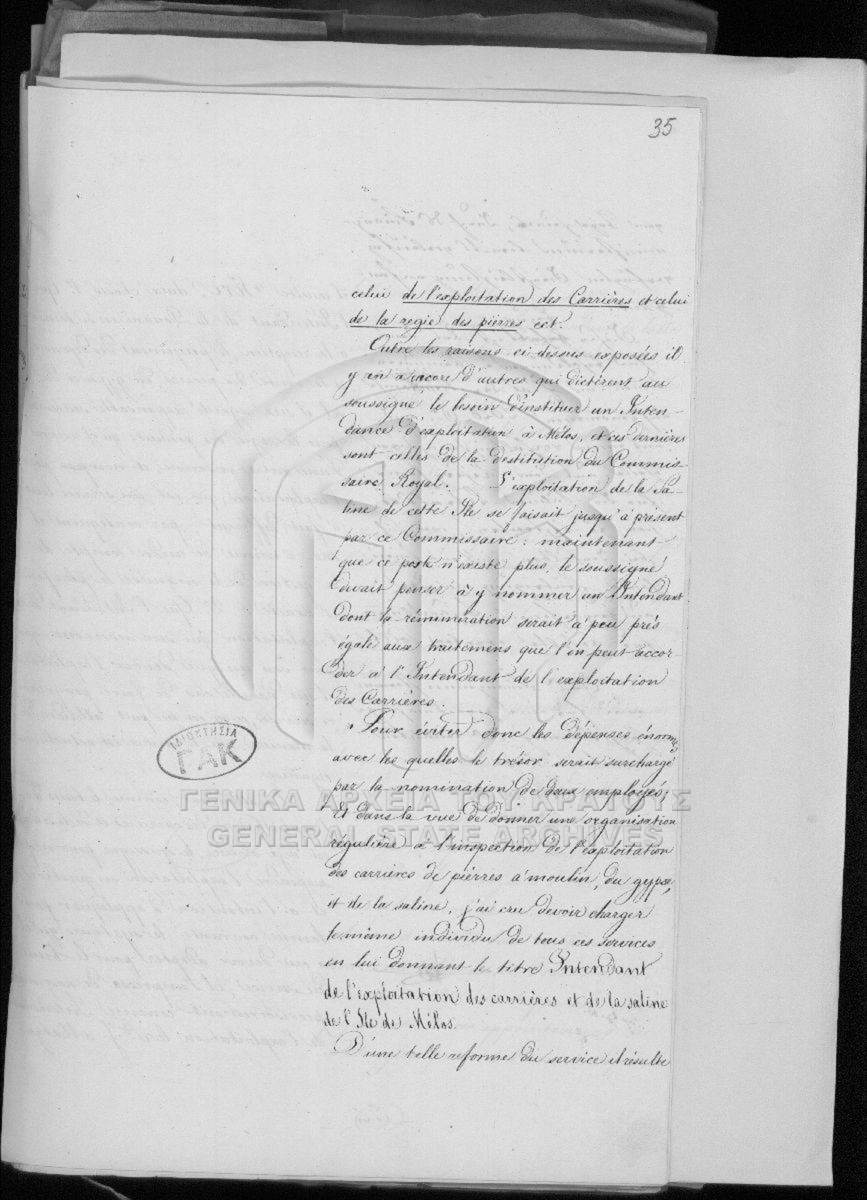 35
celui de l'exploitation des Carrières et celui
de la regie des pierres ect.
Outre les raisons ci-dessus exposées il
y en a encore d'autres qui dictèrent au
soussigné le besoin d'instituer un Inten-
dance d'exploitation à Mélos, et ces dernières
sont celles de la destitution du Commis-
saire Royal. L'exploitation de la Sa-
line de cette Ile se faisait jusqu'à présent
par ce Commissaire: maintenant
que ce poste n'existe plus, le soussigné
devait penser à y nommer un Intendant
dont la rémunération serait à peu près
égale aux traitemens que l'on peut accor-
der à l'Intendant de l'exploitation
des Carrières.
Pour éviter donc les dépenses énormes
avec les quelles le trésor serait surchargé
par la nomination de deux employés;
Et dans la vue de donner une organisation
régulière à l'inspection de l'exploitation
des carrières de pierres à moulin, du gypse,
et de la saline, j'ai cru devoir charger
le même individu de tous ces services
en lui donnant le titre Intendant
de l'exploitation des carrières et de la saline
de l'Ile de Mélos.
D'une telle reforme du service il résulte
ΙΔΙΟΚΤΗΣΙΑ
ΓΑΚ
ΓΕΝΙΚΑ ΑΡΧΕΙΑ ΤΟΥ ΚΡΑΤΟΥΣ
GENERAL STATE ARCHIVES